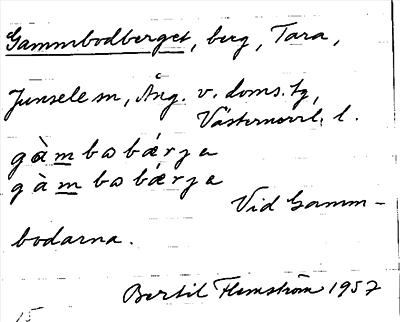 Gammbodberget, berg, Tara,
Junsele sn, Ång. v. doms. tg,
Västernorrl. l.
gàm̲bωbǽrjɐ
gàm̲bωbǽrjɐ
Vid Gamm-
bodarna.
Bertil Flemström 1957
15